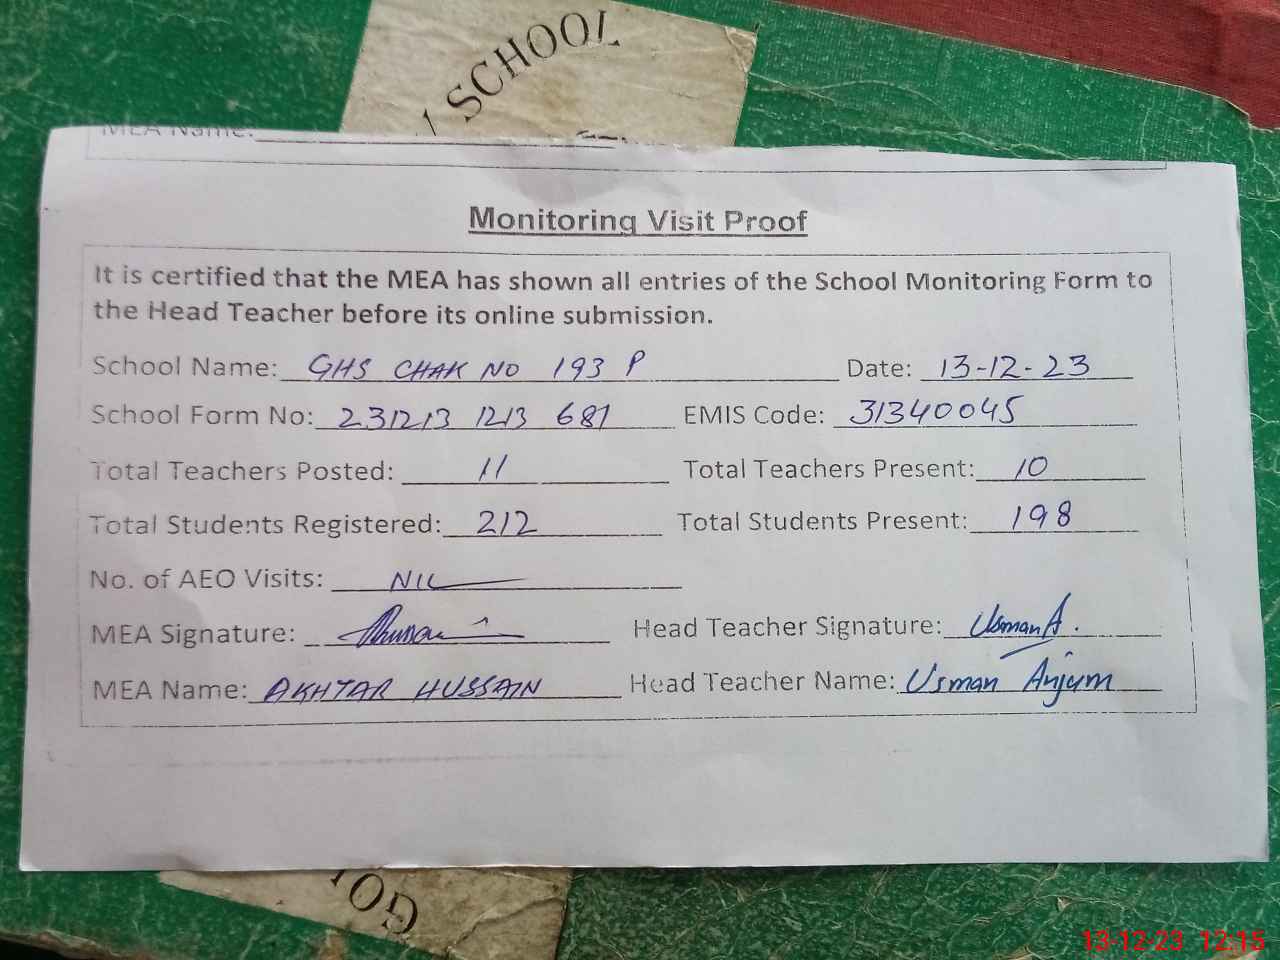 SCHOOL
MEA Name:
Monitoring Visit Proof
It is certified that the MEA has shown all entries of the School Monitoring Form to
the Head Teacher before its online submission.
School Name: GHS CHAK NO 193 P Date: 13-12-23
School Form No: 231213 1213 681 EMIS Code: 31340045
Total Teachers Posted: 11 Total Teachers Present: 10
Total Students Registered: 212 Total Students Present: 198
No. of AEO Visits: NIL
MEA Signature: Head Teacher Signature: Usman A.
MEA Name: AKHTAR HUSSAIN Head Teacher Name: Usman Anjum
13-12-23 12:15